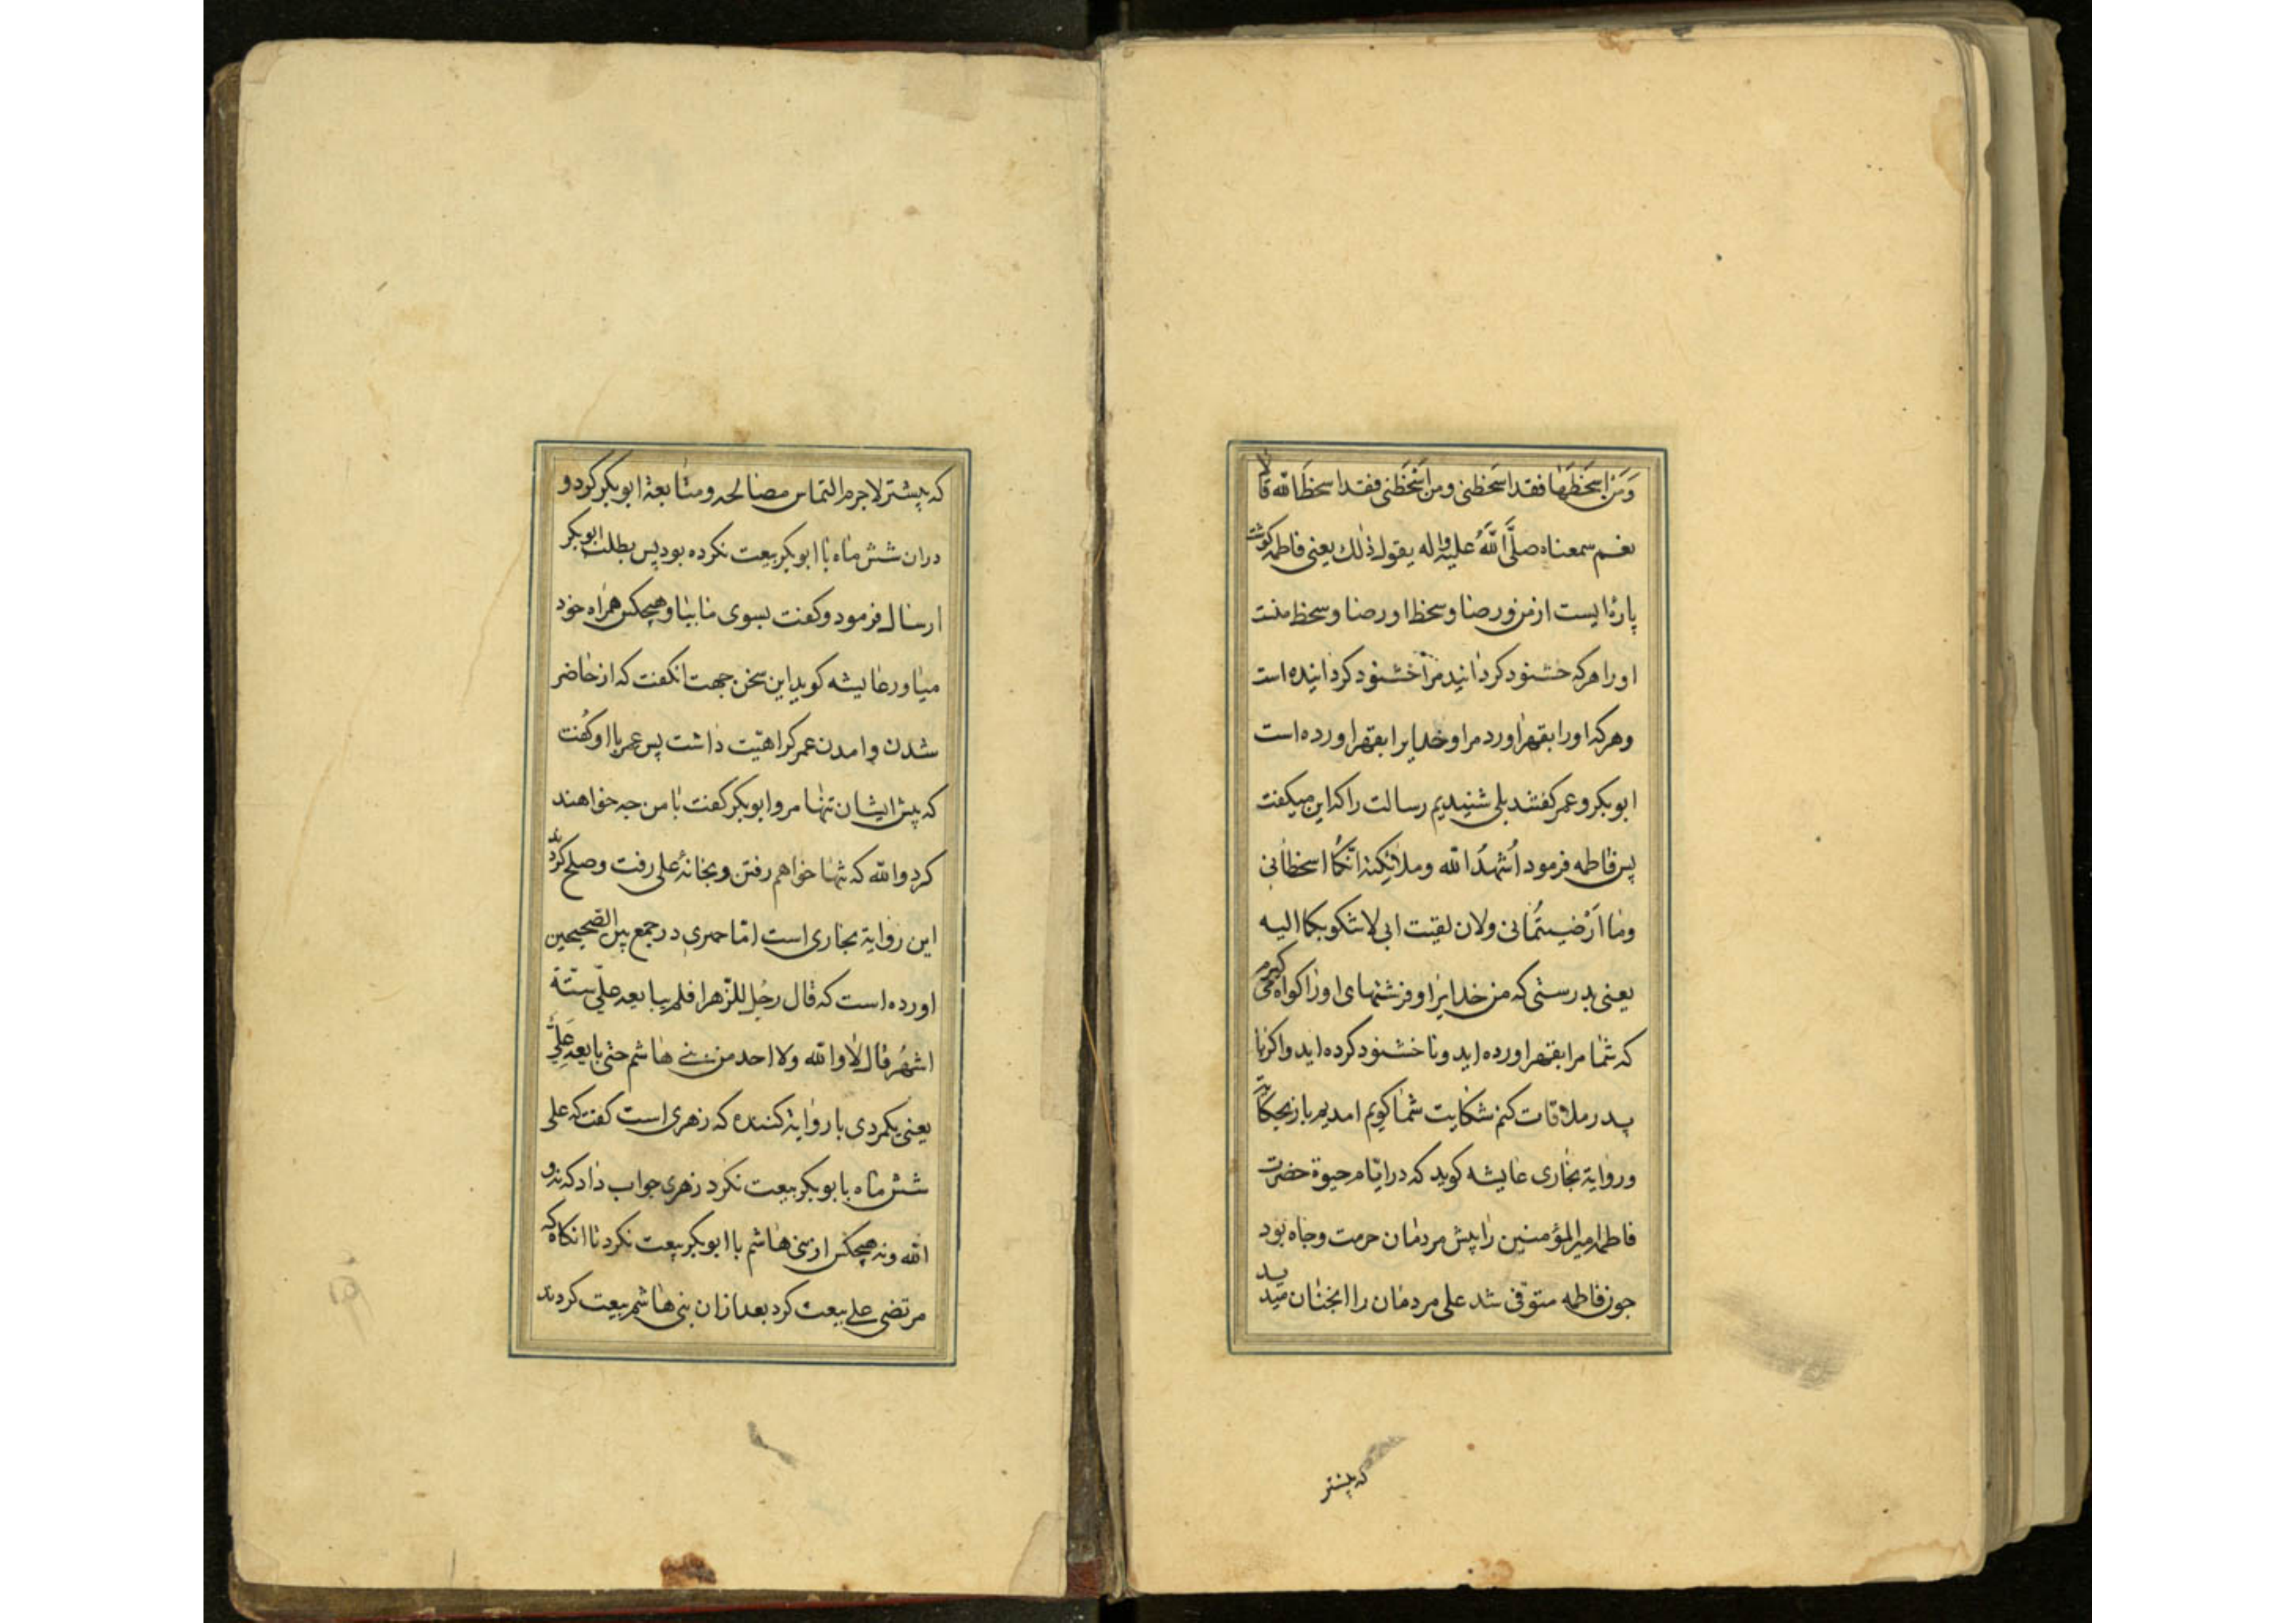 وَمَن اسخَطَهٰا فقد اسَخطنی ومن اسَخَطَنی فقد اسخطَ الله قالا
نعم سمعناه صلَّی اللّٰهُ علیه واله یقول ذٰلك یعنی فاطمه کوشت
پارۀ ایست از من ورضا وسخط او رضا وسخط منست
اورا هرکه خشنود کردانید مرا خشنود کردانیده است
وهرکه اورا بقهر اورد مرا وخدایرا بقهر اورده است
ابوبکر وعمر کفتند بلی شنیدیم رسالت را که این میکفت
پس فاطمه فرمود اُشهدُ الله وملائکته انّکما اسخطانی
وما اَرْضیتُمانی ولان لقیت ابی لاشکو بکما الیه
یعنی بدرستی که من خدایرا وفرشتهای اورا کواه میکیرم
که شما مرا بقهر اورده اید ونا خشنود کرده اید واکر با
پدر ملاقات کنم شکایت شما کویم امدیم باز بحکایة
وروایة بخاری عایشه کوید که در ایّام حیوة حضرت
فاطمه امیر المؤمنین را پیش مردمان حرمت وجاه بود
چون فاطمه متوفّی شد علی مردمان را انچنان ندید
که پیشتر
که پیشتر لاجرم التماس مصالحه ومتابعة ابوبکر کرد و
دران شش ماه با ابوبکر بیعت نکرده بود پس بطلب ابوبکر
ارسال فرمود وکفت بسوی ما بیا وهیچکس همراه خود
میاور عایشه کوید این سخن جهت انکفت که از حاضر
شدن وامدن عمر کراهیّت داشت پس عمر با او کفت
که پیش ایشان تنها مرو ابوبکر کفت با من چه خواهند
کرد والله که تنها خواهم رفتن وبخانۀ علی رفت وصلح کردند
این روایة بخاری است امّا حمیدی در جمع بین الصّحیحین
اورده است که قال رجُل للزّهرا فلم یبایعه علیّ ستّة
اشهُر قال لا والله ولا احد من بنی هاشم حتی بایعه علیٌّ
یعنی یکمردی با روایة کننده که زهری است کفت که علی
شش ماه با بوبکر بیعت نکرد زهری جواب داد که نه و
الله ونه هیچکس از بنی هاشم با ابوبکر بیعت نکرد تا انکاه که
مرتضی علی بیعت کرد بعد ازان بنی هاشم بیعت کردند